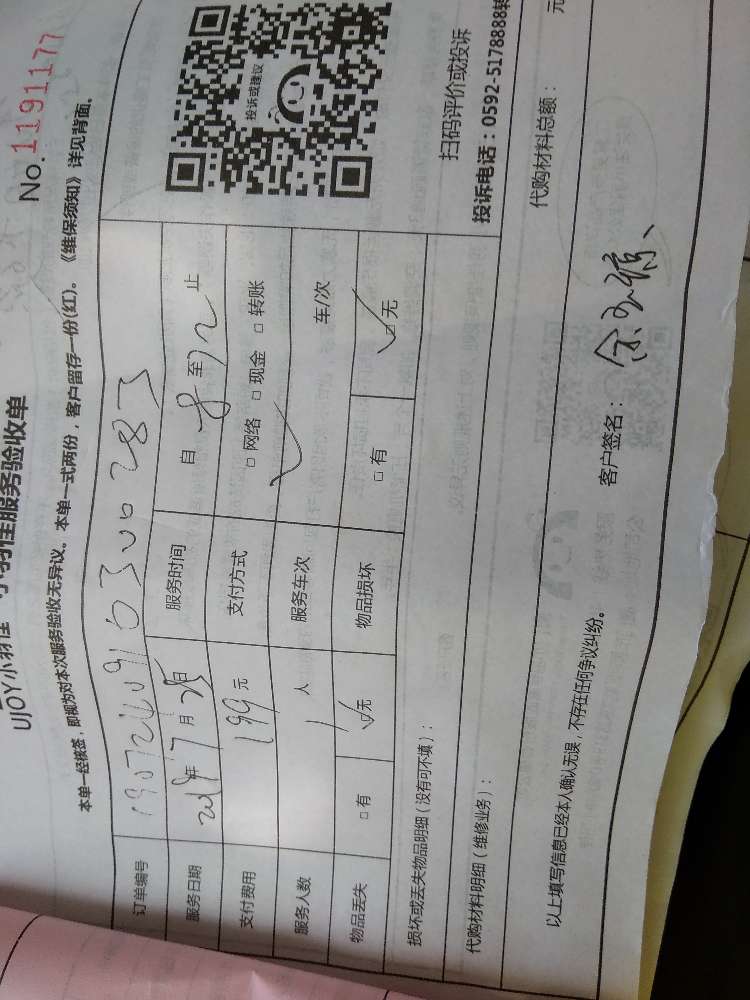 No.1191177
UJOY小羽佳 小羽佳服务验收单
本单一经核签，即视为对本次服务验收无异议。本单一式两份，客户留存一份(红)。《维保须知》详见背面。
订单编号
服务日期 年 7 月 28 日 服务时间 自 8 至 12 止
支付费用 199 元 支付方式 □ 网络 □ 现金 □ 转账
服务人数 1 人 服务车次 车/次
物品丢失 □ 有 □ 无 物品损坏 □ 有 □ 无
投诉或建议
扫码评价或投诉
投诉电话：0592-5178888转
损坏或丢失物品明细（没有可不填）：
代购材料明细（维修业务）： 代购材料总额： 元
以上填写信息已经本人确认无误，不存在任何争议纠纷。 客户签名：